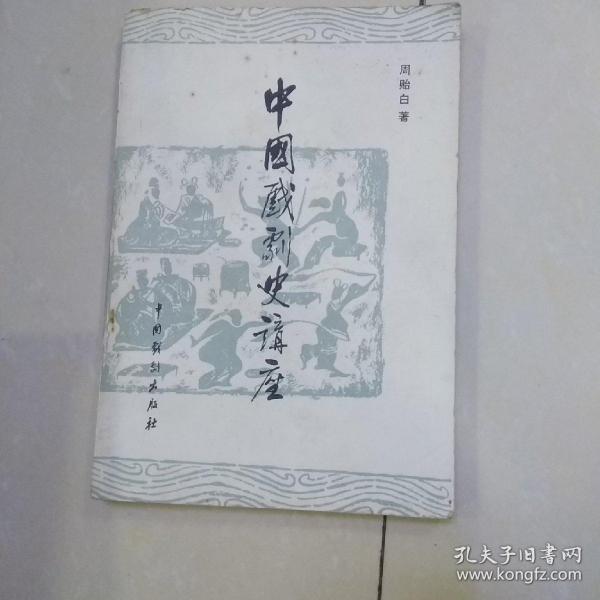 周贻白著
中國戲劇史講座
中国戏剧出版社
孔夫子旧书网
www.kongfz.com